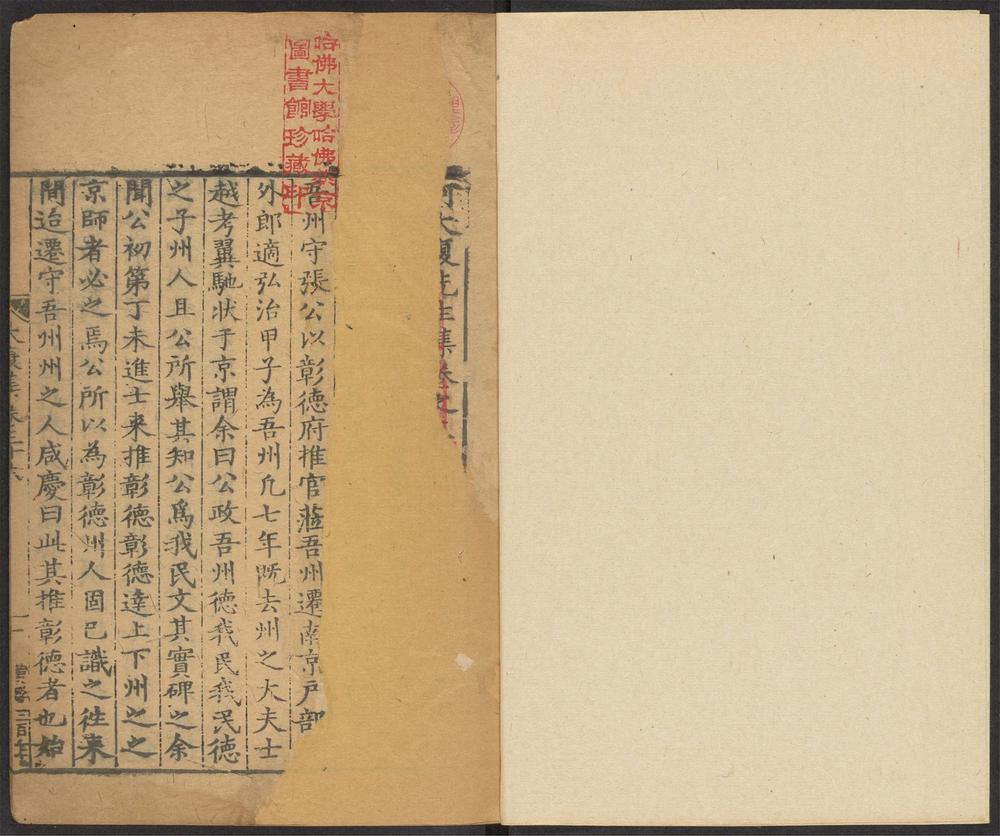 大復先生集卷之
吾州守張公以彰德府推官蒞吾州遷南京戶部
外郎適弘治甲子為吾州凡七年既去州之大夫士
越考翼馳状于京謂余曰公政吾州德我民我民德
之子州人且公所舉其知公爲我民文其實碑之余
聞公初第丁未進士来推彰德彰德達上下州之之
京師者必之焉公所以為彰德州人固已識之徃来
間迨遷守吾州州之人咸慶曰此其推彰德者也始
哈佛大學哈佛京
圖書館珍藏印